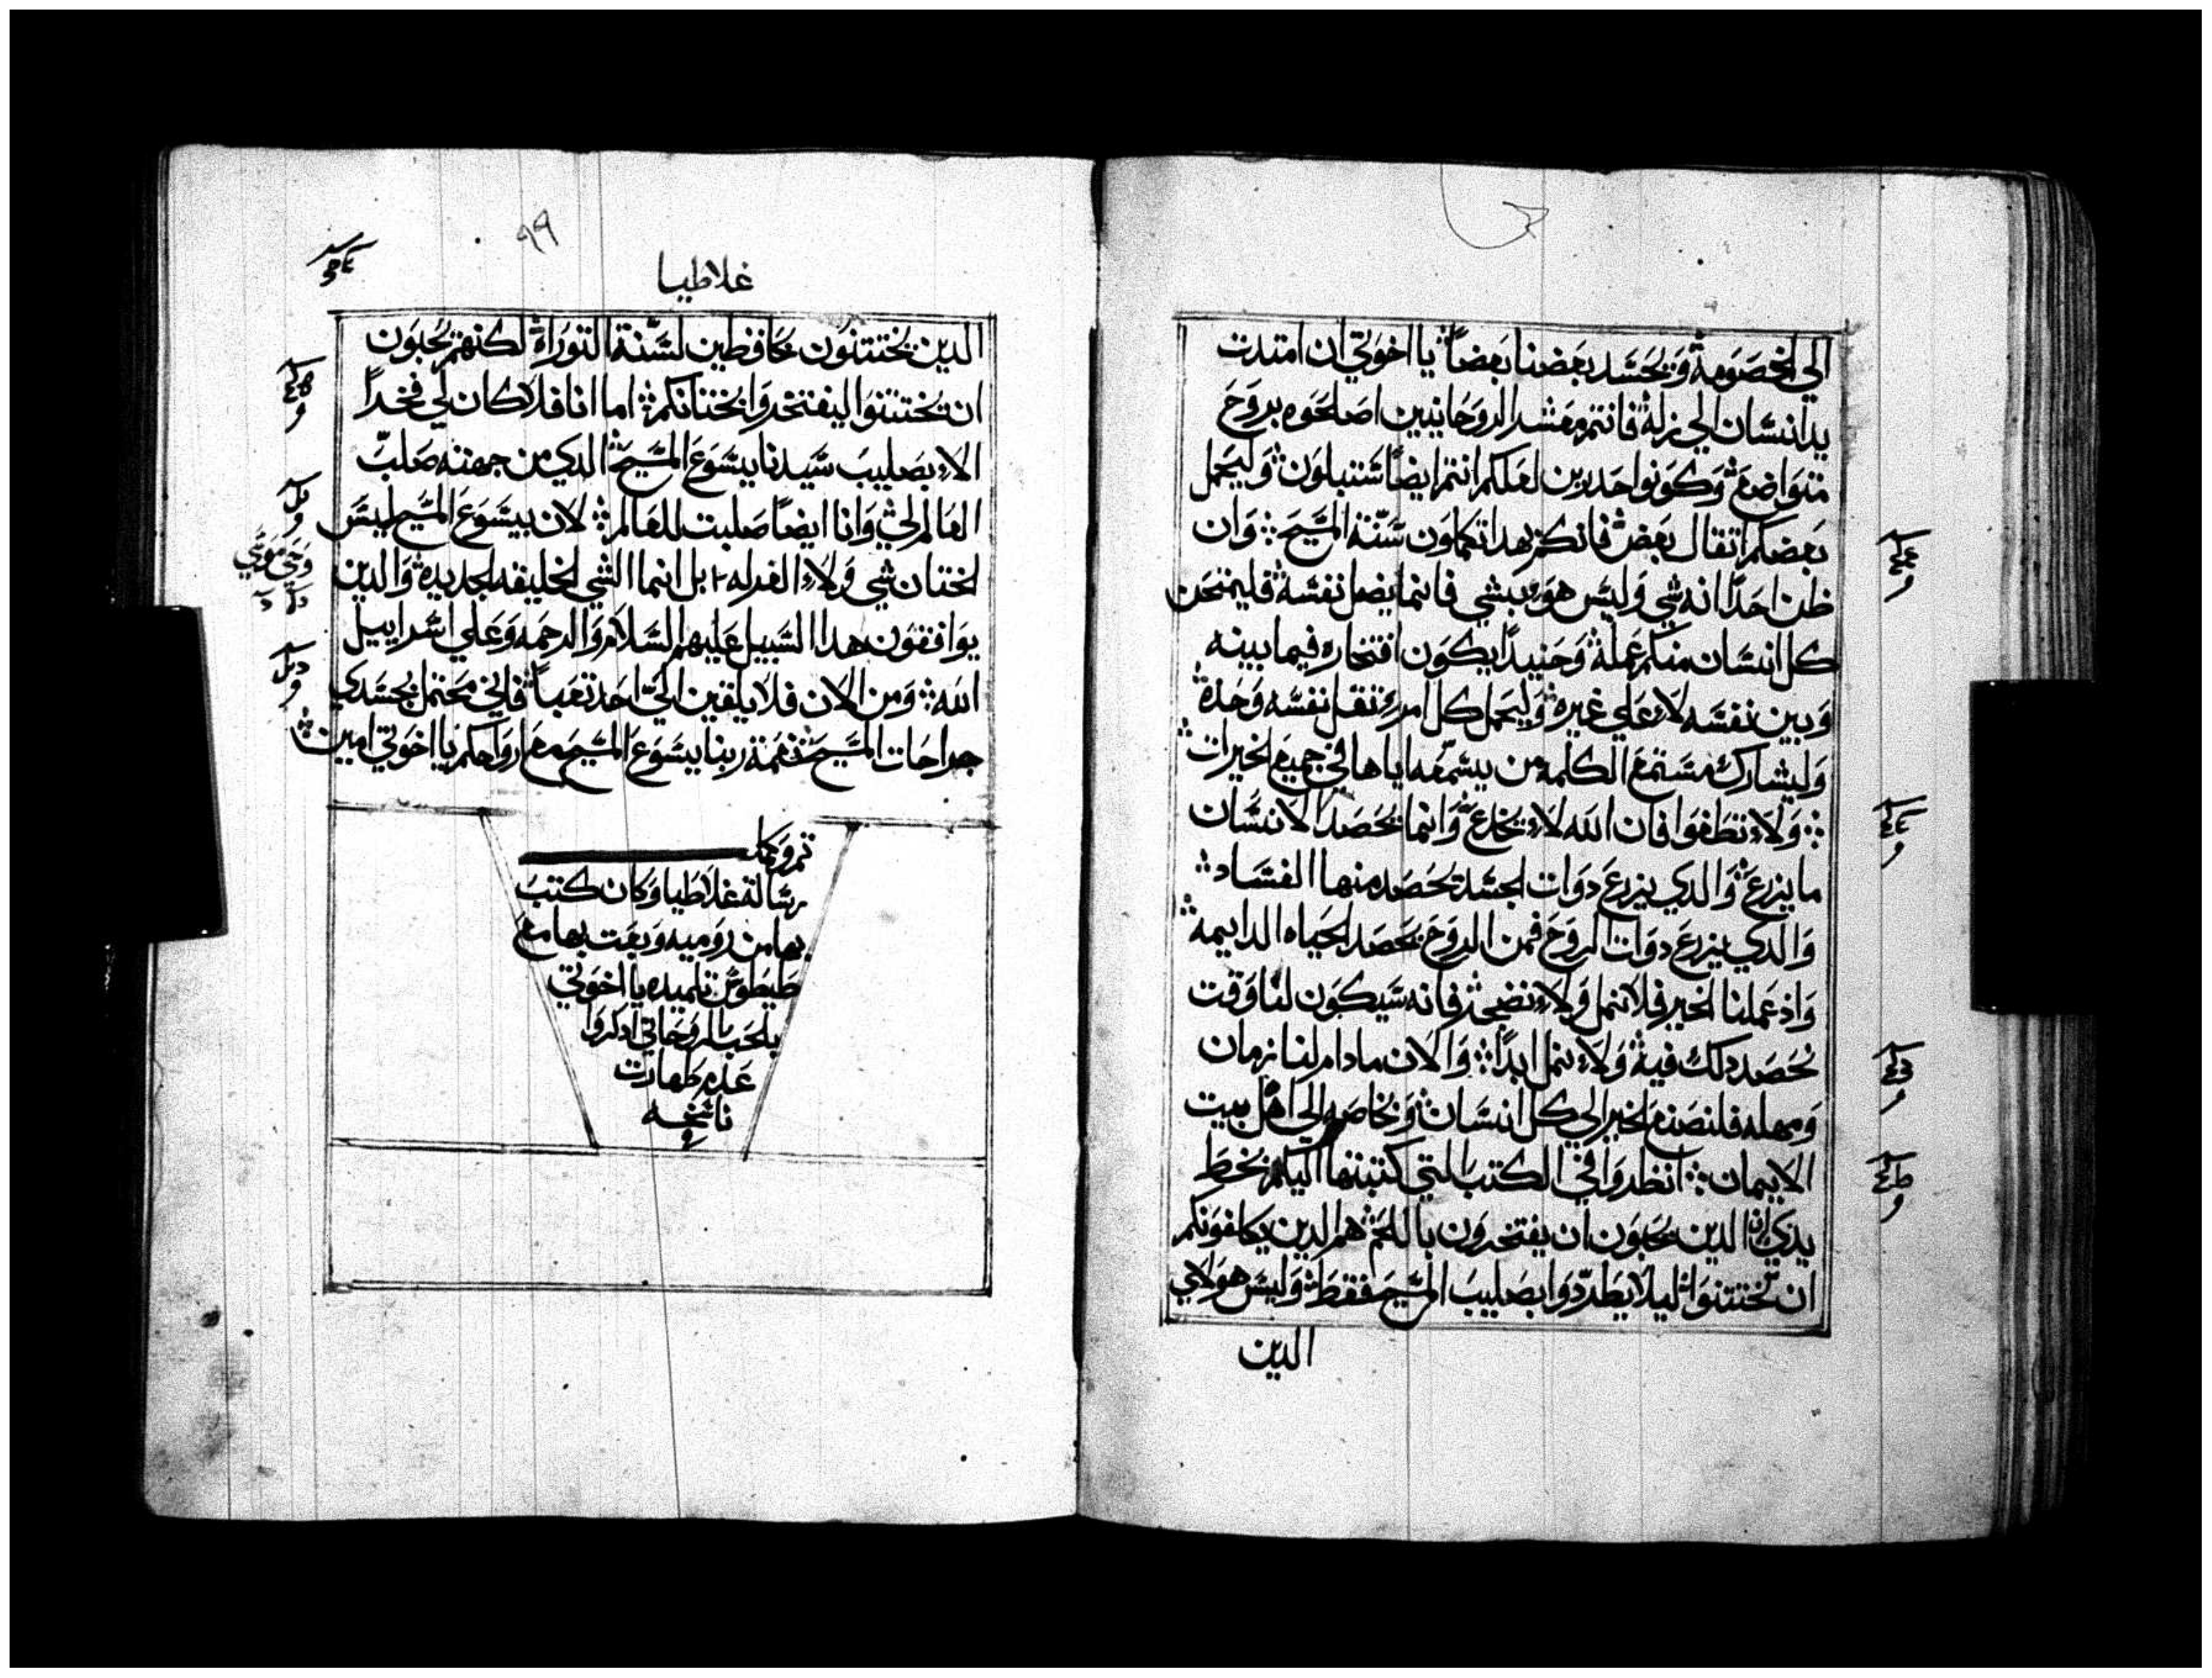 الي الخصومة ويحسد بعضنا بعضاً يا اخوتي ان امتدت
يد انسان الي زلة فانتم معشر الروحانيين اصلحوه بروح
متواضع وكونوا حدرين لعلكم انتم ايضاً ستبلون وليحمل
بعضكم اتقال بعض فانكم بهدا تكملون سنة المسيح وان
ظن احداً انه شي وليس هو بشي فانما يضل نفسه فليمتحن
كل انسان منكم عمله وحنيداً يكون افتخاره فيما بينه
وبين نفسه لا علي غيره وليحمل كل امرء تقل نفسه وحده
وليشارك مستمع الكلمه من يسمعه اياها في جميع الخيرات
ولا تطغوا فان الله لا يخادع وانما يحصد الانسان
ما يزرع والدي يزرع دوات الجسد يحصد منها الفساد
والدي يزرع دوات الروح فمن الروح يحصد الحياه الدايمه
واذ عملنا الخير فلا نمل ولا نضجر فانه سيكون لنا وقت
نحصد دلك فيه ولا نمل ابداً والان ما دام لنا زمان
ومهله فلنصنع الخير الي كل انسان وبخاصه الي اهل بيت
الايمان انظروا في الكتب التي كتبتها اليكم بخط
يدي ان الدين يحبون ان يفتخرون باللحم هم الدين يكلفونكم
ان تختتنوا ليلا يطردوا بصليب المسيح فقط وليس هولاي
الدين
٩٩
غلاطيا
الدين يختتنون محافظين لسنة التوراة لكنهم يحبون
ان تختتنوا ليفتخروا بختانكم اما انا فلا كان لي فخراً
الا بصليب سيدنا يسوع المسيح الدي من جهته صلب
العالم لي وانا ايضاً صلبت للعالم لان بيسوع المسيح ليس
الختان شي ولا الغرله بل انما الشي الخليقه الجديدة والدين
يوافقون هدا السبيل عليهم السلام والرحمه وعلي اسراييل
الله ومن الان فلا يلقين الي احد تعباً فاني محتمل بجسدي
جراحات المسيح نعمة ربنا يسوع المسيح مع ارواحكم يا اخوتي امين
رسالة غلاطيا وكان كتب
بها من روميه وبعت بها مع
طيطوس تلميده يا اخوتي
بالحب الروحاني ادكروا
عدم طهارت
ناسخه